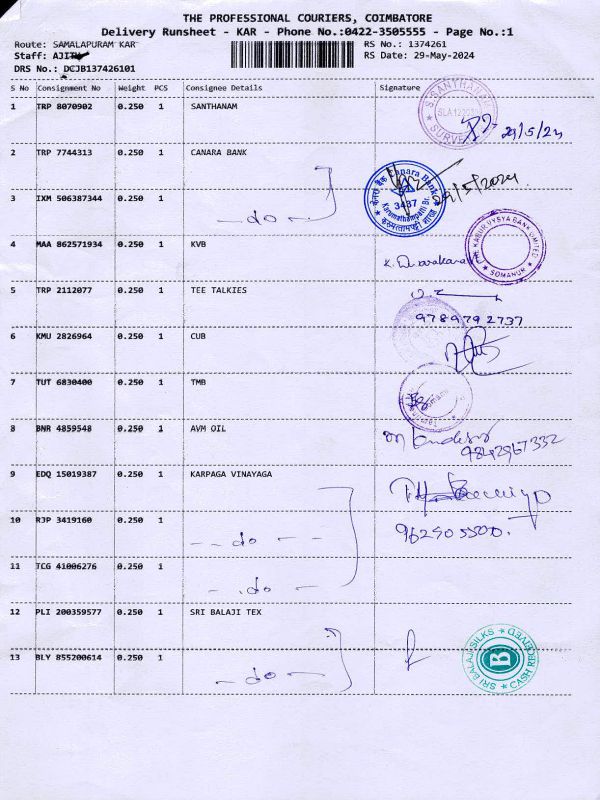 THE PROFESSIONAL COURIERS, COIMBATORE
Delivery Runsheet - KAR - Phone No.:0422-3505555 - Page No.:1
Route: SAMALAPURAM KAR
RS No.: 1374261
Staff: AJITH
RS Date: 29-May-2024
DRS No.: DCJB137426101
S No Consignment No Weight PCS Consignee Details Signature
1 TRP 8070902 0.250 1 SANTHANAM
S.SANTHANAM
SURVEYOR
29/5/24
2 TRP 7744313 0.250 1 CANARA BANK
Canara Bank
3437
Karumathampatti Br.
29/5/2024
3 IXM 506387344 0.250 1 -do-
4 MAA 862571934 0.250 1 KVB
THE KARUR VYSYA BANK LIMITED
SOMANUR
5 TRP 2112077 0.250 1 TEE TALKIES
9789792737
6 KMU 2826964 0.250 1 CUB
7 TUT 6830400 0.250 1 TMB
8 BNR 4859548 0.250 1 AVM OIL
9842967332
9 EDQ 15019387 0.250 1 KARPAGA VINAYAGA
10 RJP 3419160 0.250 1 -do-
11 TCG 41006276 0.250 1 -do-
12 PLI 200359577 0.250 1 SRI BALAJI TEX
13 BLY 855200614 0.250 1 -do-
SRI BALAJI SILKS
B
CASH RECEIVED